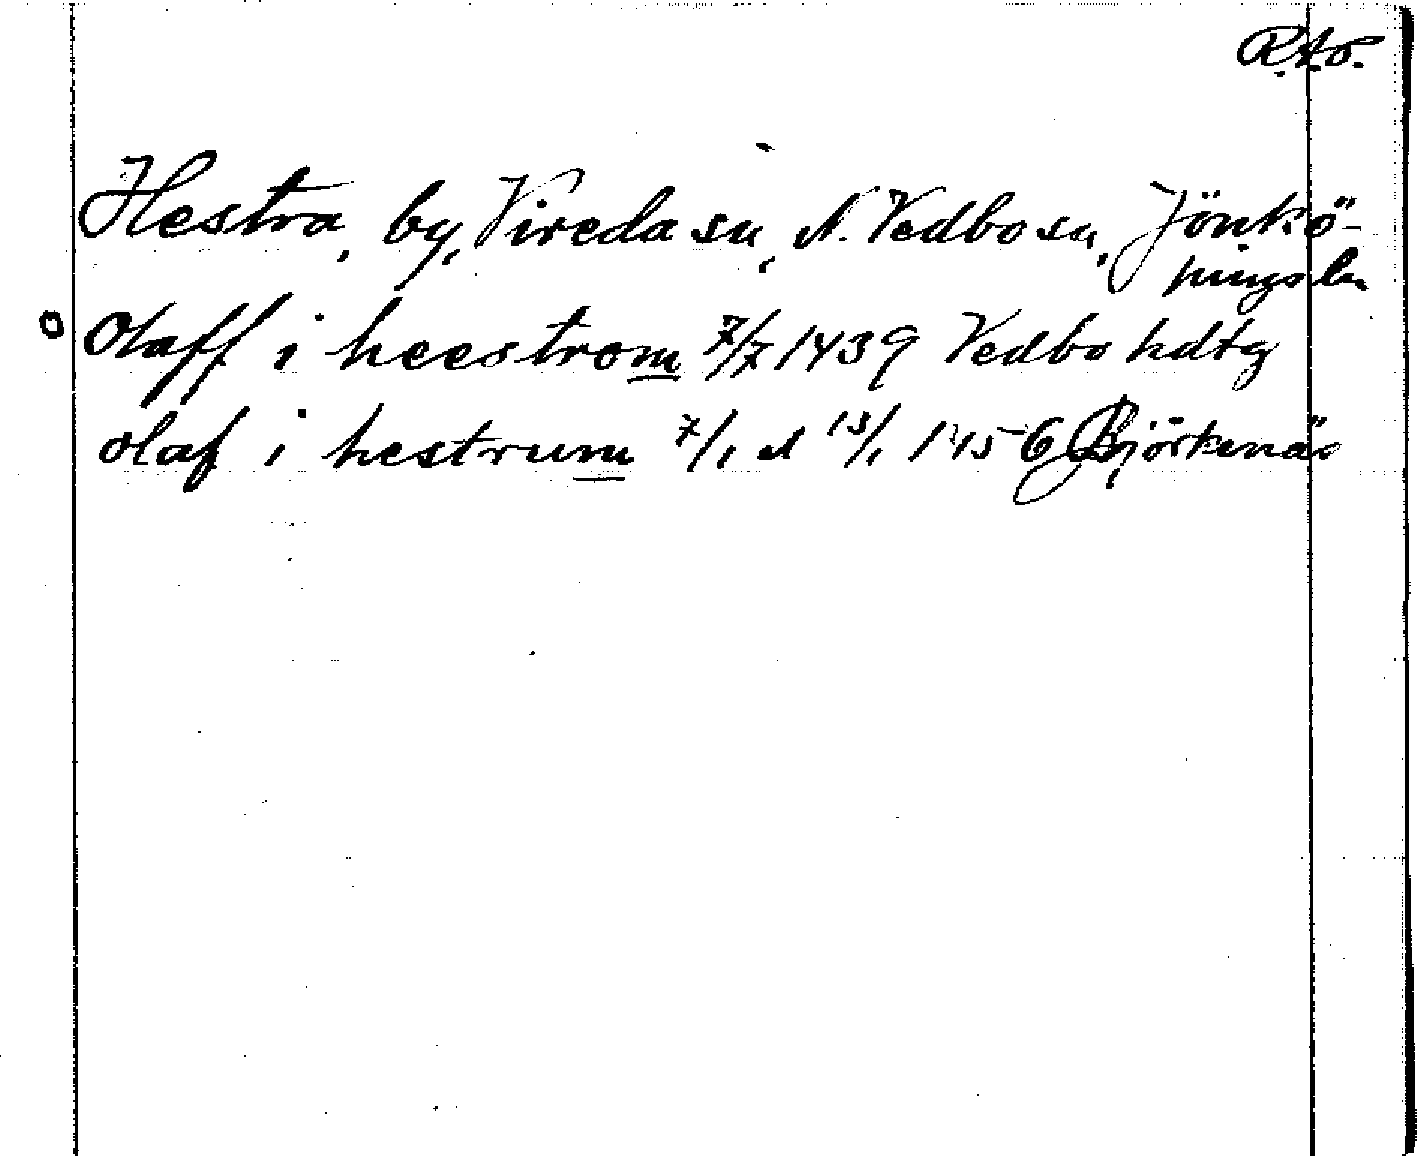 R.A.P.
Hestra, by, Vireda sn, N. Vedbo sn, Jönkö-
pings ln
o Olaff i heestrom 7/7 1439 Vedbo hdtg
olaf i hestrum 7/1 d 13/1 1456 Björkenäs